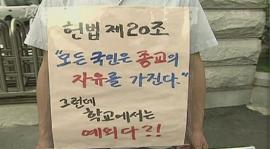 헌법 제20조
"모든 국민은 종교의
자유를 가진다."
그런데
학교에서는
예외다?!